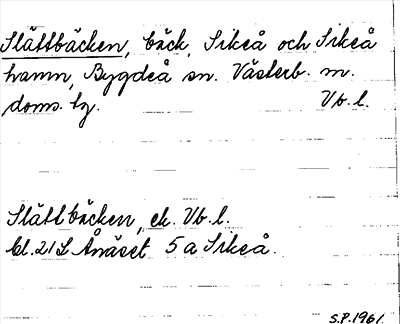 Slättbäcken, bäck, Sikeå och Sikeå
hamn, Bygdeå sn. Västerb. m.
doms. tg. Vb. l.
Slättbäcken, ek. Vb. l.
bl. 21 L Ånäset 5 a Sikeå.
S.P. 1961.